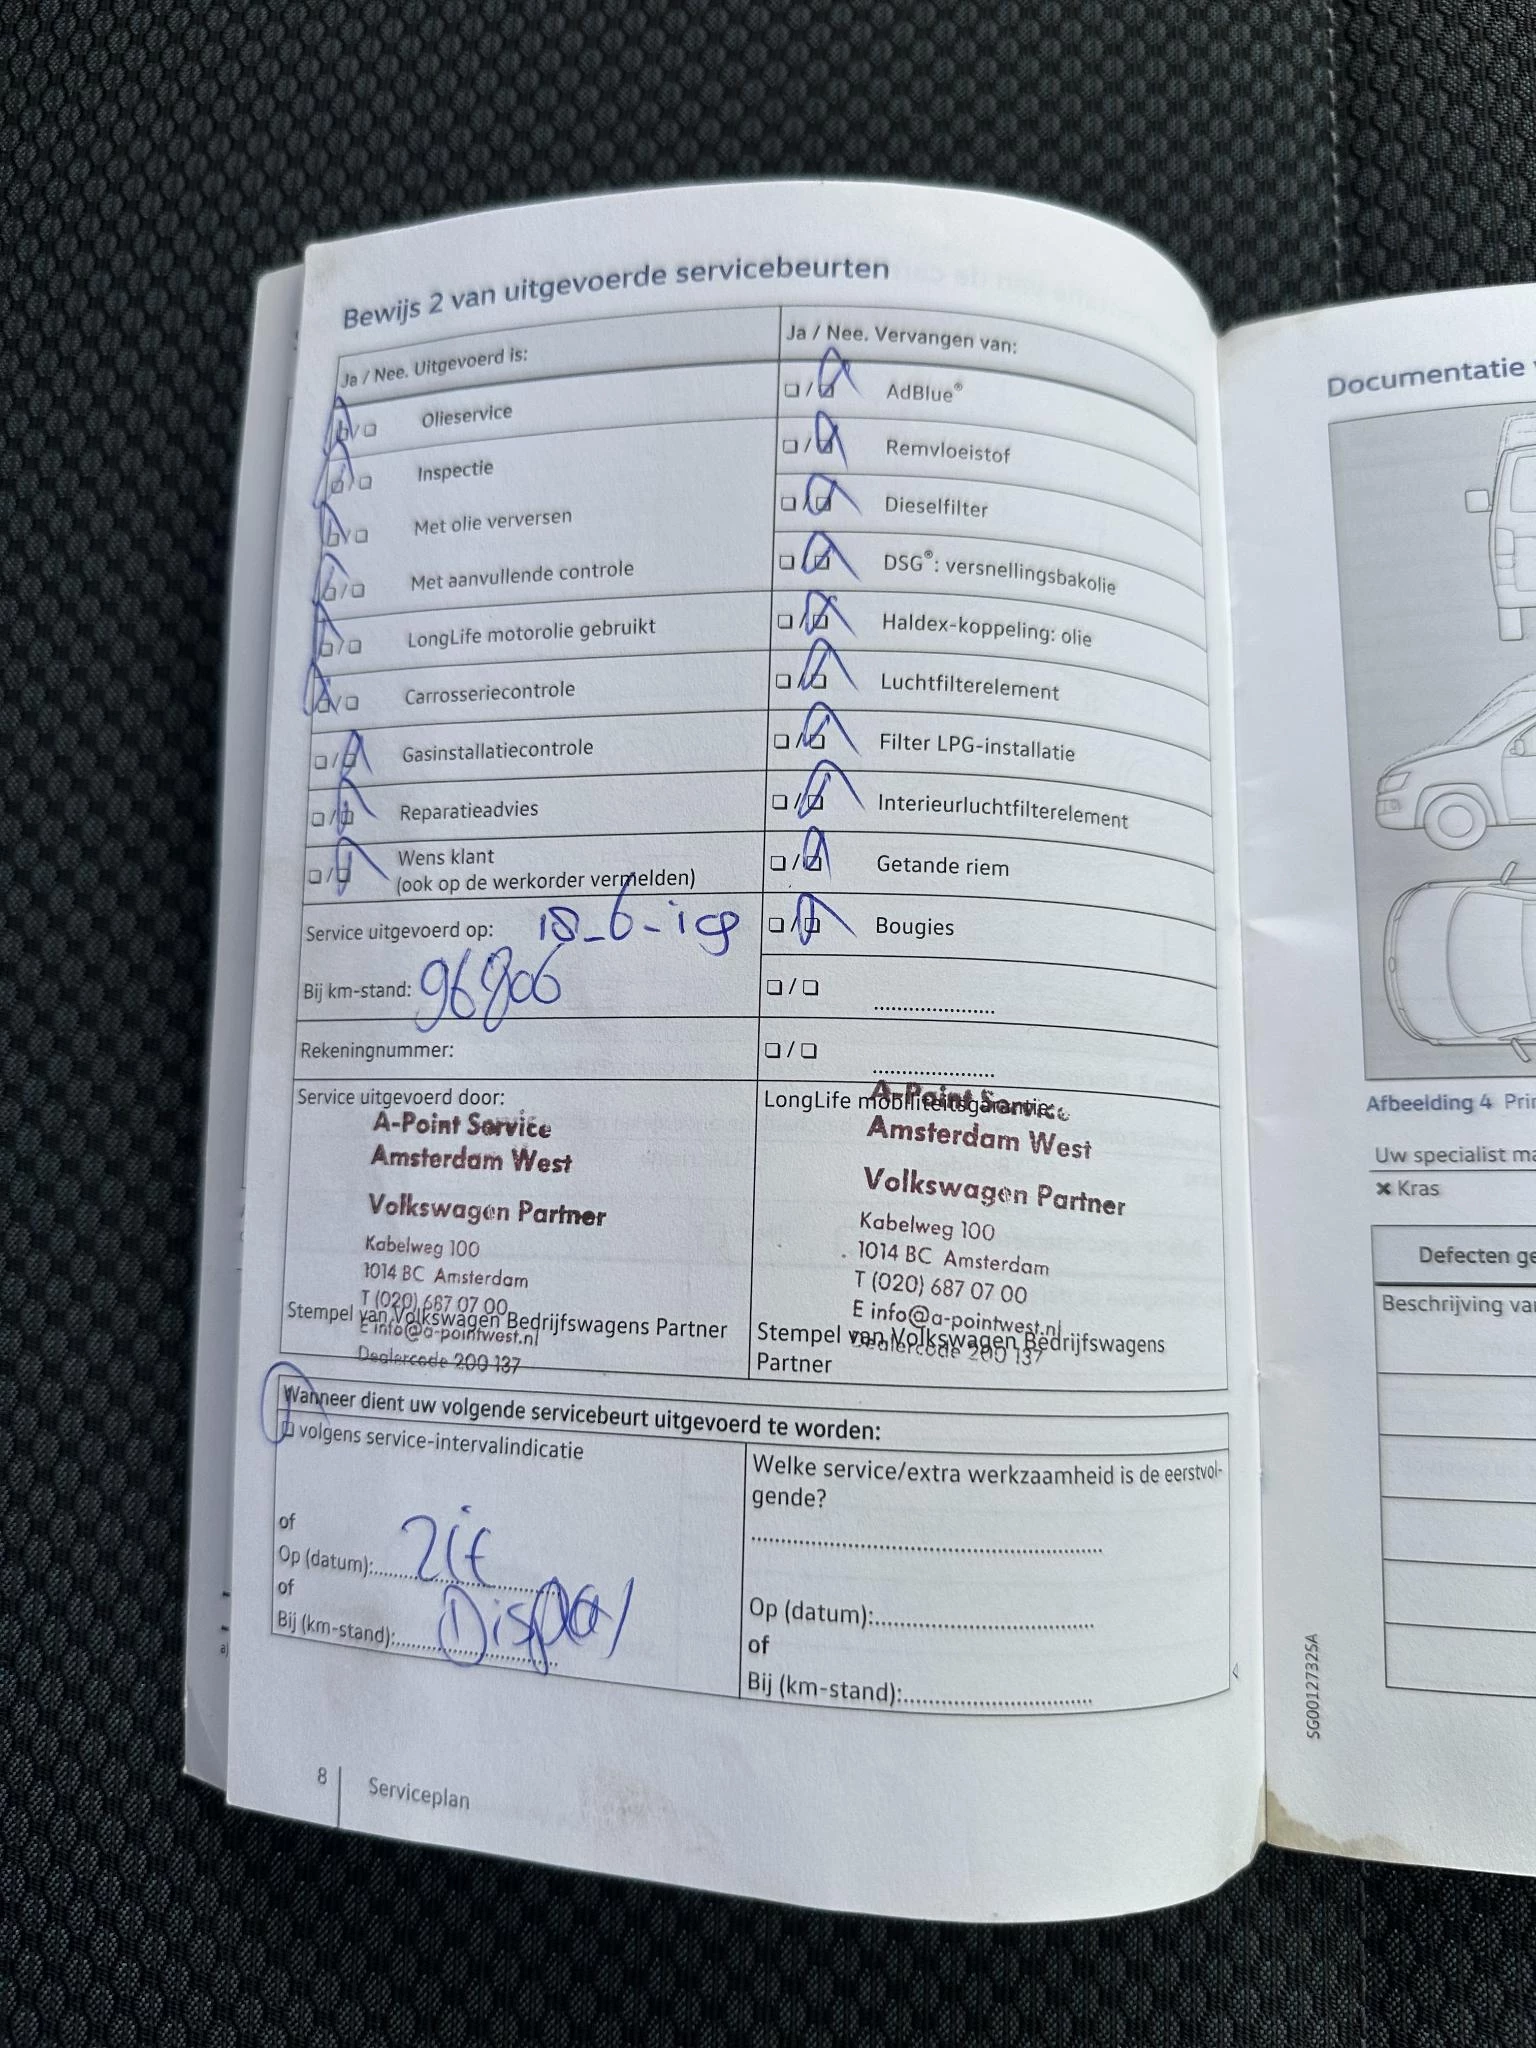 Bewijs 2 van uitgevoerde servicebeurten
Ja / Nee. Uitgevoerd is:
Olieservice
Inspectie
Met olie verversen
Met aanvullende controle
LongLife motorolie gebruikt
Carrosseriecontrole
Gasinstallatiecontrole
Reparatieadvies
Wens klant
(ook op de werkorder vermelden)
Service uitgevoerd op:
Bij km-stand:
Rekeningnummer:
Service uitgevoerd door:
A-Point Service
Amsterdam West
Volkswagen Partner
Kabelweg 100
1014 BC Amsterdam
T (020) 687 07 00
E info@a-pointwest.nl
Dealercode 200 137
Stempel van Volkswagen Bedrijfswagens Partner
Ja / Nee. Vervangen van:
AdBlue®
Remvloeistof
Dieselfilter
DSG®: versnellingsbakolie
Haldex-koppeling: olie
Luchtfilterelement
Filter LPG-installatie
Interieurluchtfilterelement
Getande riem
Bougies
LongLife mobiliteitsgarantie:
A-Point Service
Amsterdam West
Volkswagen Partner
Kabelweg 100
1014 BC Amsterdam
T (020) 687 07 00
E info@a-pointwest.nl
Dealercode 200 137
Stempel van Volkswagen Bedrijfswagens
Partner
Wanneer dient uw volgende servicebeurt uitgevoerd te worden:
volgens service-intervalindicatie
of
Op (datum):
of
Bij (km-stand): Display
Welke service/extra werkzaamheid is de eerstvol-
gende?
Op (datum):
of
Bij (km-stand):
8 Serviceplan
Documentatie
Afbeelding 4
Uw specialist
✖ Kras
Defecten
Beschrijving
SG0012732SA